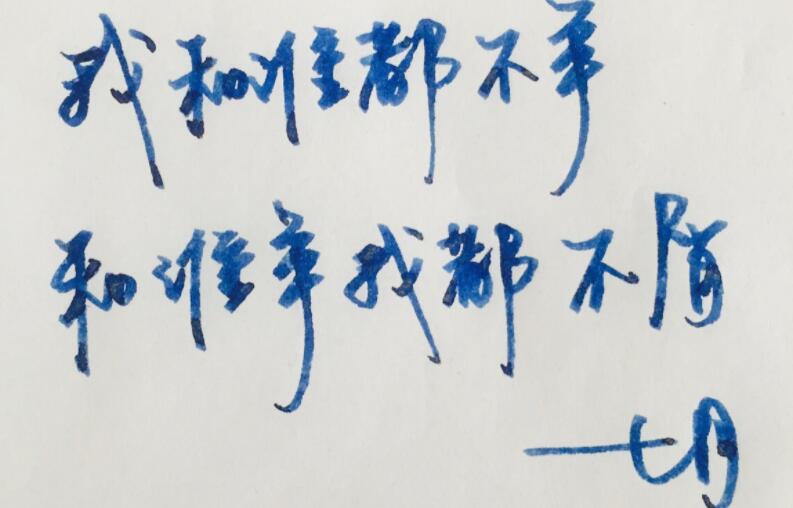 我和谁都不争
和谁争我都不屑
七月